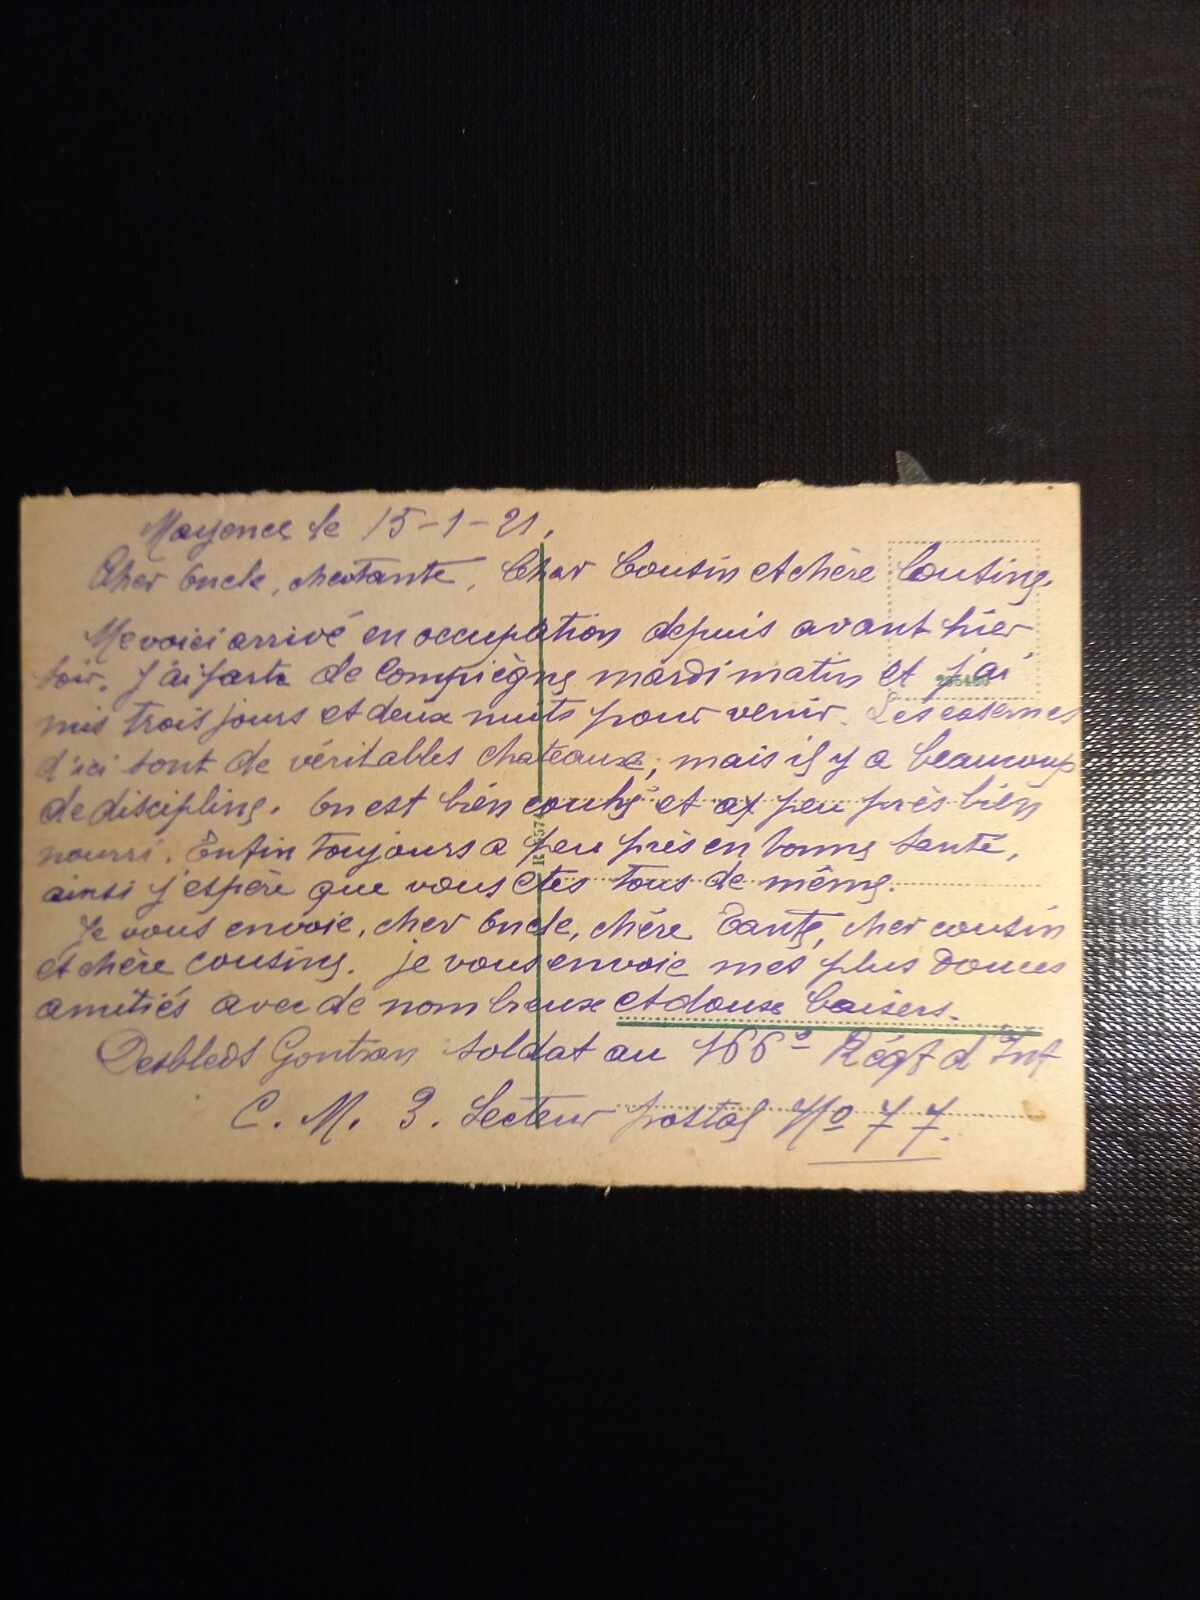 Mayence le 15-1-21.
Cher Oncle, chertante, Cher Cousin et chère Cousine.
Me voici arrivé en occupation depuis avant hier
soir. J'ai parti de Compiègne mardi matin et j'ai
mis trois jours et deux nuits pour venir. Les casernes
d'ici sont de véritables chateaux, mais il y a beaucoup
de discipline. On est bien couché et a peu près bien
nourri. Enfin toujours a peu près en bonne santé,
ainsi j'espère que vous etes tous de même.
Je vous envoie, cher Oncle, chère Tante, cher cousin
et chère cousine. je vous envoie mes plus douces
amitiés avec de nombreux et doux baisers.
Desbleds Gontran soldat au 166e Régt d'Inf
C. M. 3. Secteur postal No 77.